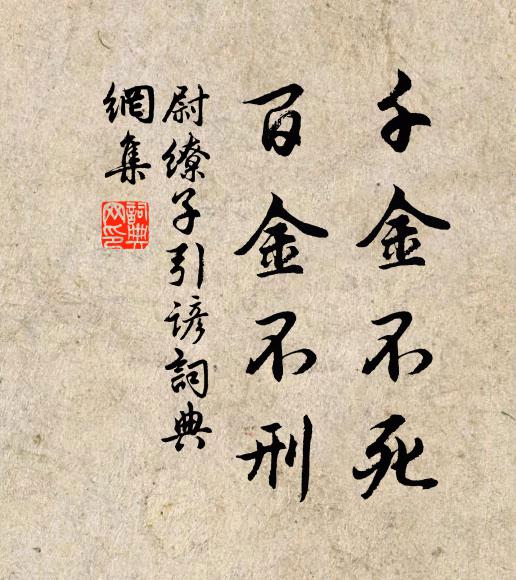 千金不死
百金不刑
尉繚子引諺詞典
網集
詞典
网印